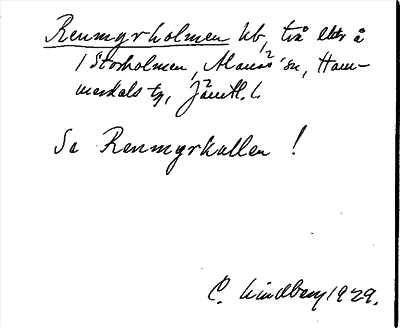 Renmyrholmen hb, två eller å
1 Storholmen, Alanäs sn, Ham-
merdals tg, Jämtl. l.
Se Renmyrkullen !
C. Lindberg 1929.